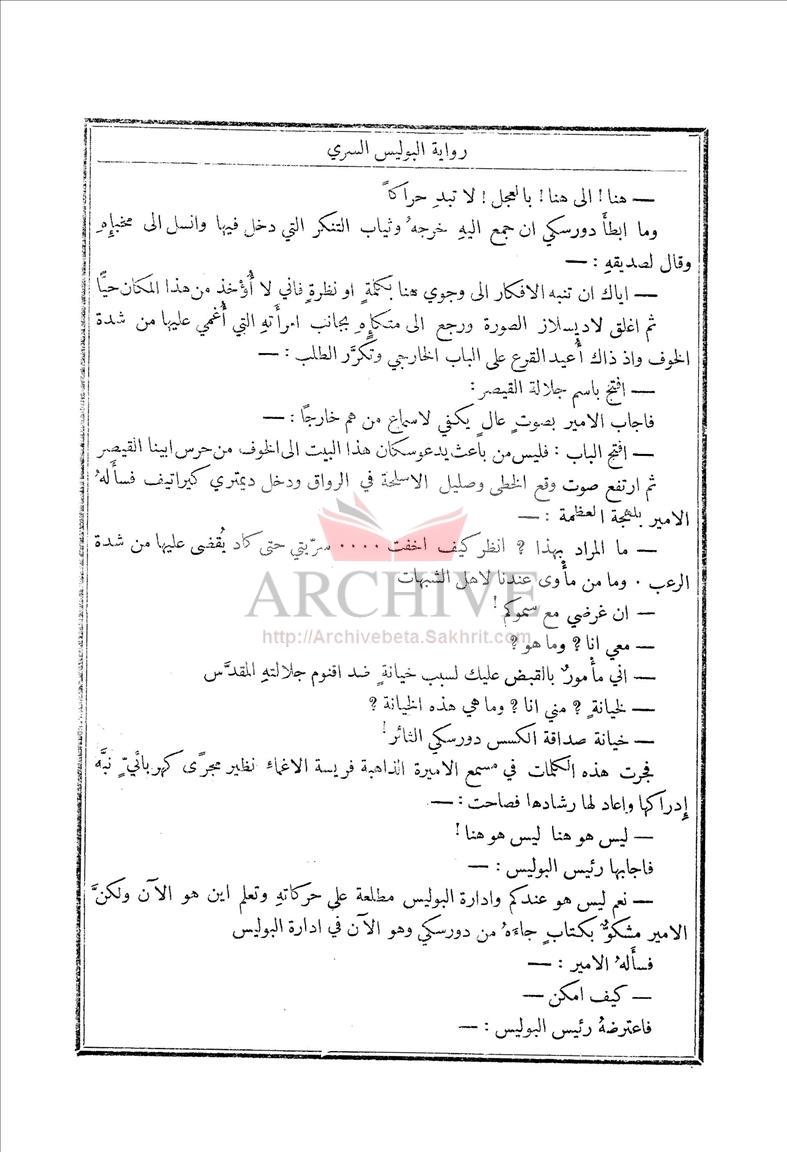 رواية البوليس السري
— هنا ! الى هنا ! بالعجل ! لا تبدِ حراكاً
وما ابطأ دورسكي ان جمع اليهِ خرجهُ وثياب التنكر التي دخل فيها وانسل الى مخبإِهِ
وقال لصديقهِ : —
— اياك ان تنبه الافكار الى وجوي هنا بكلمةٍ او نظرةٍ فاني لا أُؤْخذ من هذا المكان حيًّا
ثم اغلق لاديسلاز الصورة ورجع الى متكإِهِ بجانب امرأتهِ التي أُغمي عليها من شدة
الخوف واذ ذاك أُعيد القرع على الباب الخارجي وتكرَّر الطلب : —
— افتح باسم جلالة القيصر :
فاجاب الامير بصوتٍ عالٍ يكفي لاسماع من هم خارجًا : —
— افتح الباب : فليس من باعث يدعو سكان هذا البيت الى الخوف من حرس ابينا القيصر
ثم ارتفع صوت وقع الخطى وصليل الاسلحة في الرواق ودخل ديمتري كيراتيف فسأَلهُ
الامير بلهجة العظمة : —
— ما المراد بهذا ? انظر كيف اخفت .... سرّيتي حتى كاد يُقضى عليها من شدة
الرعب . وما من مأْوى عندنا لاهل الشبهات
ARCHIVE
— ان غرضي مع سموكم !
http://Archivebeta.Sakhrit.com
— معي انا ? وما هو ?
— اني مأْمورٌ بالقبض عليك لسبب خيانةٍ ضد اقنوم جلالتهِ المقدَّس
— لخيانةٍ ? مني انا ? وما هي هذه الخيانة ?
— خيانة صداقة الكسس دورسكي الثائر !
فجرت هذه الكلمات في مسمع الاميرة الذاهبة فريسة الاغماء نظير مجرًى كهربائيٍّ نبَّه
إِدراكها واعاد لها رشادها فصاحت : —
— ليس هو هنا ليس هو هنا !
فاجابها رئيس البوليس : —
— نعم ليس هو عندكم وادارة البوليس مطلعة على حركاتهِ وتعلم اين هو الآن ولكنَّ
الامير مشكوٌّ بكتابٍ جاءَهُ من دورسكي وهو الآن في ادارة البوليس
فسأَلهُ الامير : —
— كيف امكن —
فاعترضهُ رئيس البوليس : —